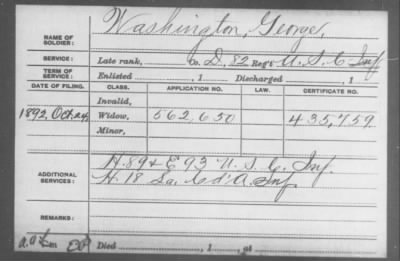 NAME OF SOLDIER: Washington, George,
SERVICE: Late rank, Co. D, 82 Reg't U.S.C. Inf
TERM OF SERVICE: Enlisted , 1 Discharged , 1
DATE OF FILING. CLASS. APPLICATION NO. LAW. CERTIFICATE NO.
Invalid,
1892, Oct. 24, Widow, 562,650 435,759.
Minor,
ADDITIONAL SERVICES: H. 89 & E 93 U.S.C. Inf.
H. 18 La. C d'A. Inf.
REMARKS:
Died , 1 , at